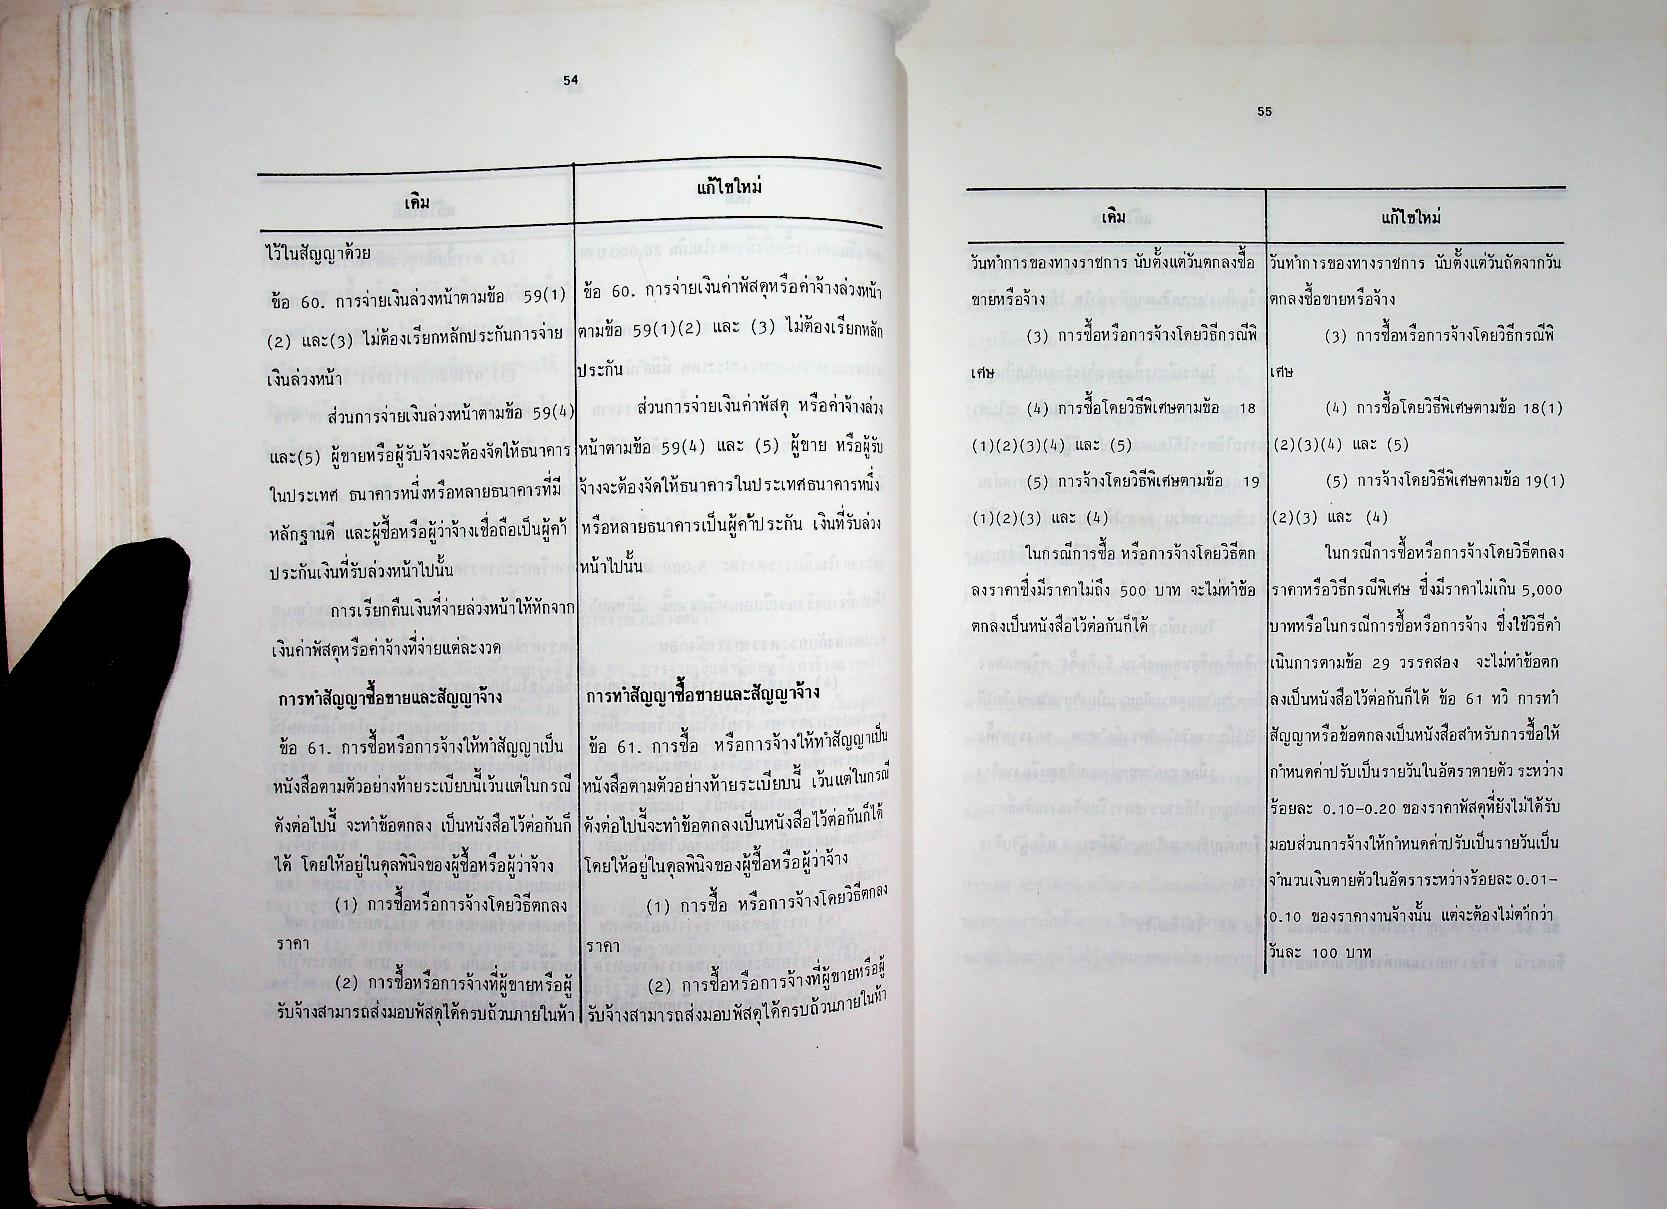 54
เดิม
ไว้ในสัญญาด้วย
ข้อ 60. การจ่ายเงินล่วงหน้าตามข้อ 59(1)
(2) และ(3) ไม่ต้องเรียกหลักประกันการจ่าย
เงินล่วงหน้า
ส่วนการจ่ายเงินล่วงหน้าตามข้อ 59(4)
และ(5) ผู้ขายหรือผู้รับจ้างจะต้องจัดให้ธนาคาร
ในประเทศ ธนาคารหนึ่งหรือหลายธนาคารที่มี
หลักฐานดี และผู้ซื้อหรือผู้ว่าจ้างเชื่อถือเป็นผู้ค้ำ
ประกันเงินที่รับล่วงหน้าไปนั้น
การเรียกคืนเงินที่จ่ายล่วงหน้าให้หักจาก
เงินค่าพัสดุหรือค่าจ้างที่จ่ายแต่ละงวด
การทำสัญญาซื้อขายและสัญญาจ้าง
ข้อ 61. การซื้อหรือการจ้างให้ทำสัญญาเป็น
หนังสือตามตัวอย่างท้ายระเบียบนี้เว้นแต่ในกรณี
ดังต่อไปนี้ จะทำข้อตกลง เป็นหนังสือไว้ต่อกันก็
ได้ โดยให้อยู่ในดุลพินิจของผู้ซื้อหรือผู้ว่าจ้าง
(1) การซื้อหรือการจ้างโดยวิธีตกลง
ราคา
(2) การซื้อหรือการจ้างที่ผู้ขายหรือผู้
รับจ้างสามารถส่งมอบพัสดุได้ครบถ้วนภายในห้า
แก้ไขใหม่
ข้อ 60. การจ่ายเงินค่าพัสดุหรือค่าจ้างล่วงหน้า
ตามข้อ 59(1)(2) และ (3) ไม่ต้องเรียกหลัก
ประกัน
ส่วนการจ่ายเงินค่าพัสดุ หรือค่าจ้างล่วง
หน้าตามข้อ 59(4) และ (5) ผู้ขาย หรือผู้รับ
จ้างจะต้องจัดให้ธนาคารในประเทศธนาคารหนึ่ง
หรือหลายธนาคารเป็นผู้ค้ำประกัน เงินที่รับล่วง
หน้าไปนั้น
การทำสัญญาซื้อขายและสัญญาจ้าง
ข้อ 61. การซื้อ หรือการจ้างให้ทำสัญญาเป็น
หนังสือตามตัวอย่างท้ายระเบียบนี้ เว้นแต่ในกรณี
ดังต่อไปนี้จะทำข้อตกลงเป็นหนังสือไว้ต่อกันก็ได้
โดยให้อยู่ในดุลพินิจของผู้ซื้อหรือผู้ว่าจ้าง
(1) การซื้อ หรือการจ้างโดยวิธีตกลง
ราคา
(2) การซื้อหรือการจ้างที่ผู้ขายหรือผู้
รับจ้างสามารถส่งมอบพัสดุได้ครบถ้วนภายในห้า
55
เดิม
วันทำการของทางราชการ นับตั้งแต่วันตกลงซื้อ
ขายหรือจ้าง
(3) การซื้อหรือการจ้างโดยวิธีกรณีพิ
เศษ
(4) การซื้อโดยวิธีพิเศษตามข้อ 18
(1)(2)(3)(4) และ (5)
(5) การจ้างโดยวิธีพิเศษตามข้อ 19
(1)(2)(3) และ (4)
ในกรณีการซื้อ หรือการจ้างโดยวิธีตก
ลงราคาซึ่งมีราคาไม่ถึง 500 บาท จะไม่ทำข้อ
ตกลงเป็นหนังสือไว้ต่อกันก็ได้
แก้ไขใหม่
วันทำการของทางราชการ นับตั้งแต่วันถัดจากวัน
ตกลงซื้อขายหรือจ้าง
(3) การซื้อหรือการจ้างโดยวิธีกรณีพิ
เศษ
(4) การซื้อโดยวิธีพิเศษตามข้อ 18(1)
(2)(3)(4) และ (5)
(5) การจ้างโดยวิธีพิเศษตามข้อ 19(1)
(2)(3) และ (4)
ในกรณีการซื้อหรือการจ้างโดยวิธีตกลง
ราคาหรือวิธีกรณีพิเศษ ซึ่งมีราคาไม่เกิน 5,000
บาทหรือในกรณีการซื้อหรือการจ้าง ซึ่งใช้วิธีดำ
เนินการตามข้อ 29 วรรคสอง จะไม่ทำข้อตก
ลงเป็นหนังสือไว้ต่อกันก็ได้ ข้อ 61 ทวิ การทำ
สัญญาหรือข้อตกลงเป็นหนังสือสำหรับการซื้อให้
กำหนดค่าปรับเป็นรายวันในอัตราตายตัว ระหว่าง
ร้อยละ 0.10-0.20 ของราคาพัสดุที่ยังไม่ได้รับ
มอบส่วนการจ้างให้กำหนดค่าปรับเป็นรายวันเป็น
จำนวนเงินตายตัวในอัตราระหว่างร้อยละ 0.01-
0.10 ของราคางานจ้างนั้น แต่จะต้องไม่ต่ำกว่า
วันละ 100 บาท